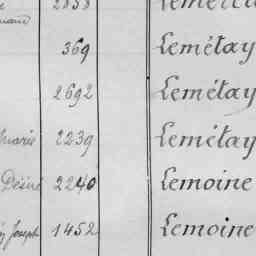 2858 Lemerci
369 Lemétay
2692 Lemétay
Marie 2239 Lemétay
Désiré 2240 Lemoine
Joseph 1452 Lemoine